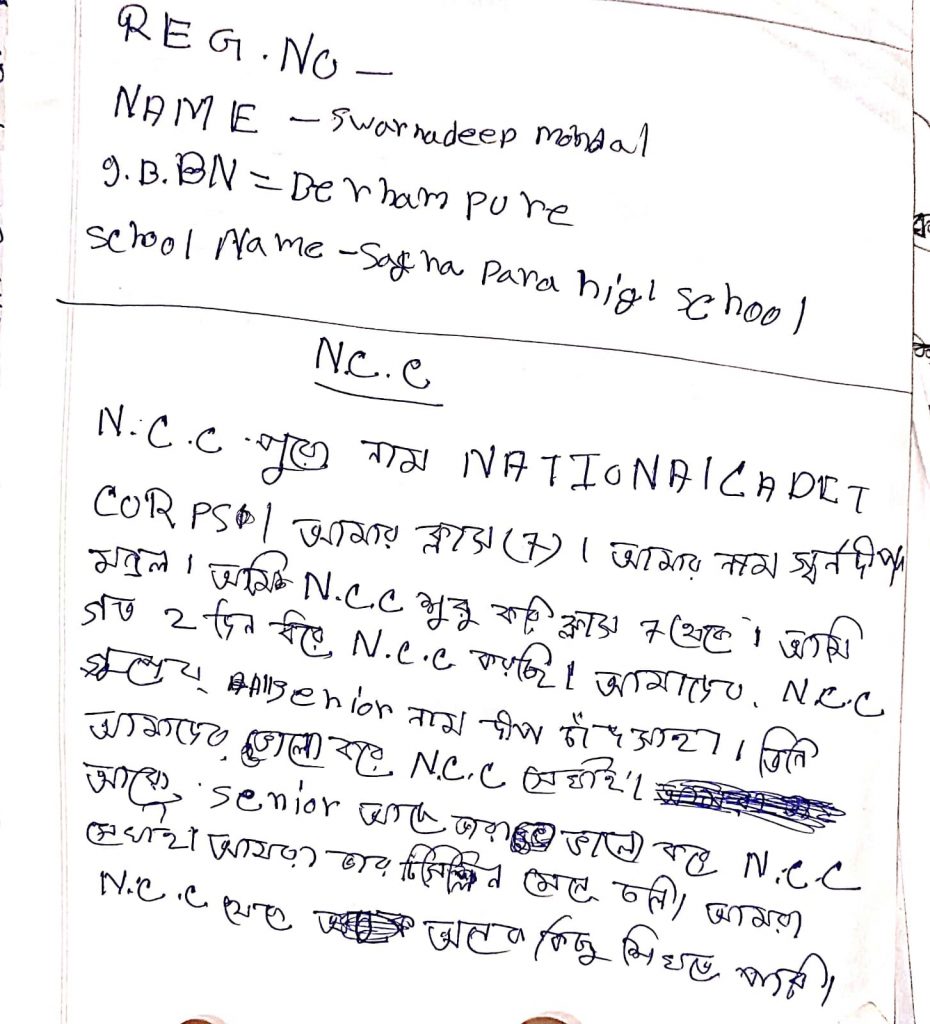 REG. NO –
NAME – Swarnadeep Mondal
9.B.BN = Berhampure
School Name – Sagna para higl school
N.C.C
N.C.C পুরো নাম NATIONAlCADET
CORPS। আমার ক্লাস (7)। আমার নাম স্বর্নদীপ
মন্ডল। আমি N.C.C শুরু করি ক্লাস 7 থেকে। আমি
গত 2 দিন ধরে N.C.C করছি। আমাদের N.C.C
গ্রুপের senior নাম দীপ চাঁদ সাহা। তিনি
আমাদের ভালো করে N.C.C সেখাই।
আরো senior আছে তারা ভালো করে N.C.C
সেখাই। আমরা তার মেনে চলি। আমরা
N.C.C থেকে অনেক কিছু শিখতে পারি।